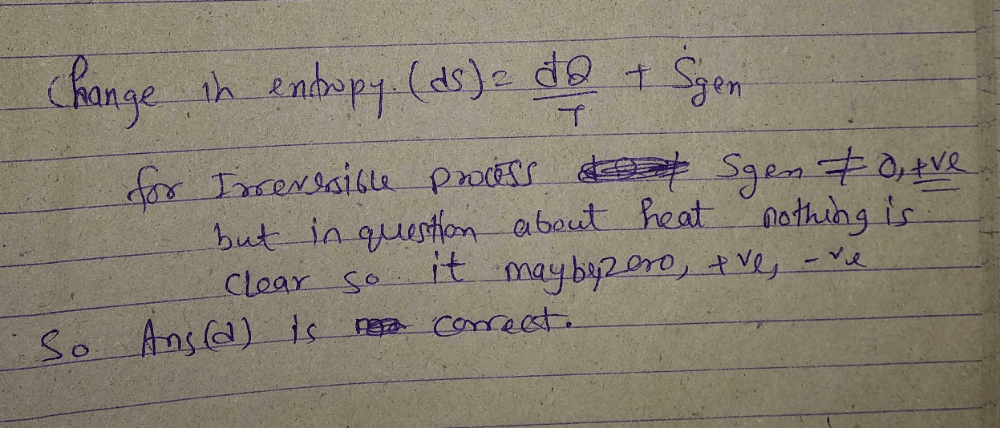 Change in entropy (ds) = dQ/T + Sgen
for Irreversible process Sgen ≠ 0, +ve
but in question about heat nothing is
clear so it maybe zero, +ve, -ve
So Ans(d) is correct.